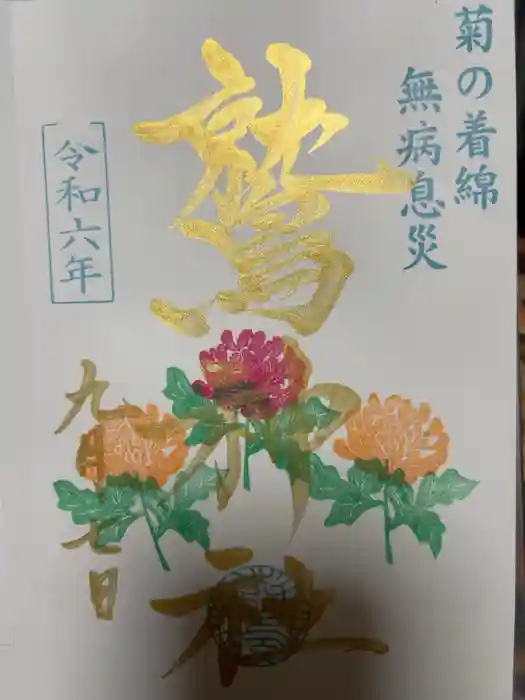 菊の着綿
無病息災
鷲神社
令和六年
九月七日